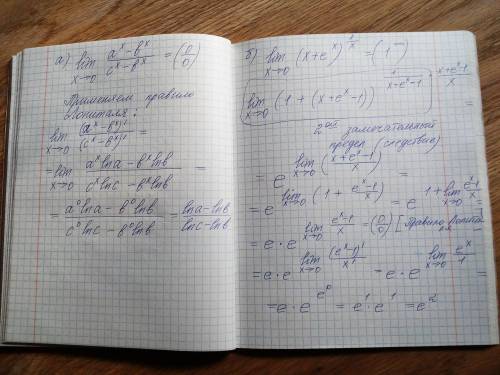 а) lim x→0 (a^x − b^x)/(c^x − b^x) = (0/0)
Применяем правило
Лопиталя:
lim x→0 (a^x − b^x)'/(c^x − b^x)' =
= lim x→0 (a^x ln a − b^x ln b)/(c^x ln c − b^x ln b) =
= (a^0 ln a − b^0 ln b)/(c^0 ln c − b^0 ln b) = (ln a − ln b)/(ln c − ln b)
б) lim x→0 (x + e^x)^(1/x) = (1^∞)
lim x→0 (1 + (x + e^x − 1))^(1/(x + e^x − 1) · (x + e^x − 1)/x) =
2ой замечательный
предел (следствие)
= e^(lim x→0 (x + e^x − 1)/x) =
= e^(lim x→0 (1 + (e^x − 1)/x)) = e^(1 + lim x→0 (e^x − 1)/x) =
= e · e^(lim x→0 (e^x − 1)/x) = (0/0) [правило Лопиталя]
= e · e^(lim x→0 (e^x − 1)'/x') = e · e^(lim x→0 e^x/1) =
= e · e^(e^0) = e^1 · e^1 = e^2